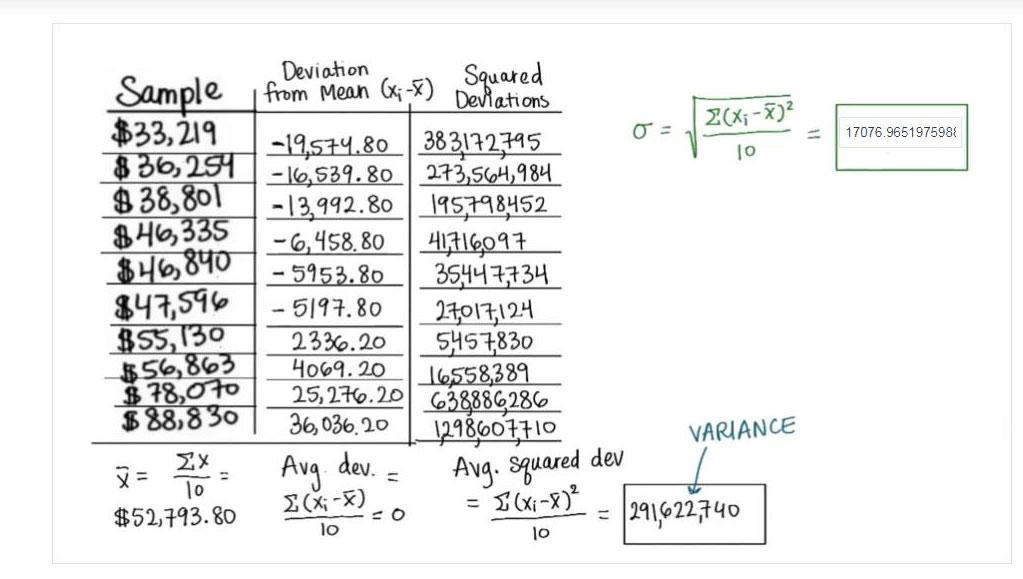 Sample Deviation from Mean (xᵢ-x̄) Squared Deviations
$33,219 -19,574.80 383,172,795
$36,254 -16,539.80 273,564,984
$38,801 -13,992.80 195,798,452
$46,335 -6,458.80 41,716,097
$46,840 -5953.80 35,447,734
$47,596 -5197.80 27,017,124
$55,130 2336.20 5,457,830
$56,863 4069.20 16,558,389
$78,070 25,276.20 638,886,286
$88,830 36,036.20 1,298,607,710
x̄ = Σx/10 = $52,793.80
Avg. dev. = Σ(xᵢ-x̄)/10 = 0
Avg. squared dev = Σ(xᵢ-x̄)²/10 = 291,622,740
VARIANCE
σ = √(Σ(xᵢ-x̄)²/10) = 17076.9651975988